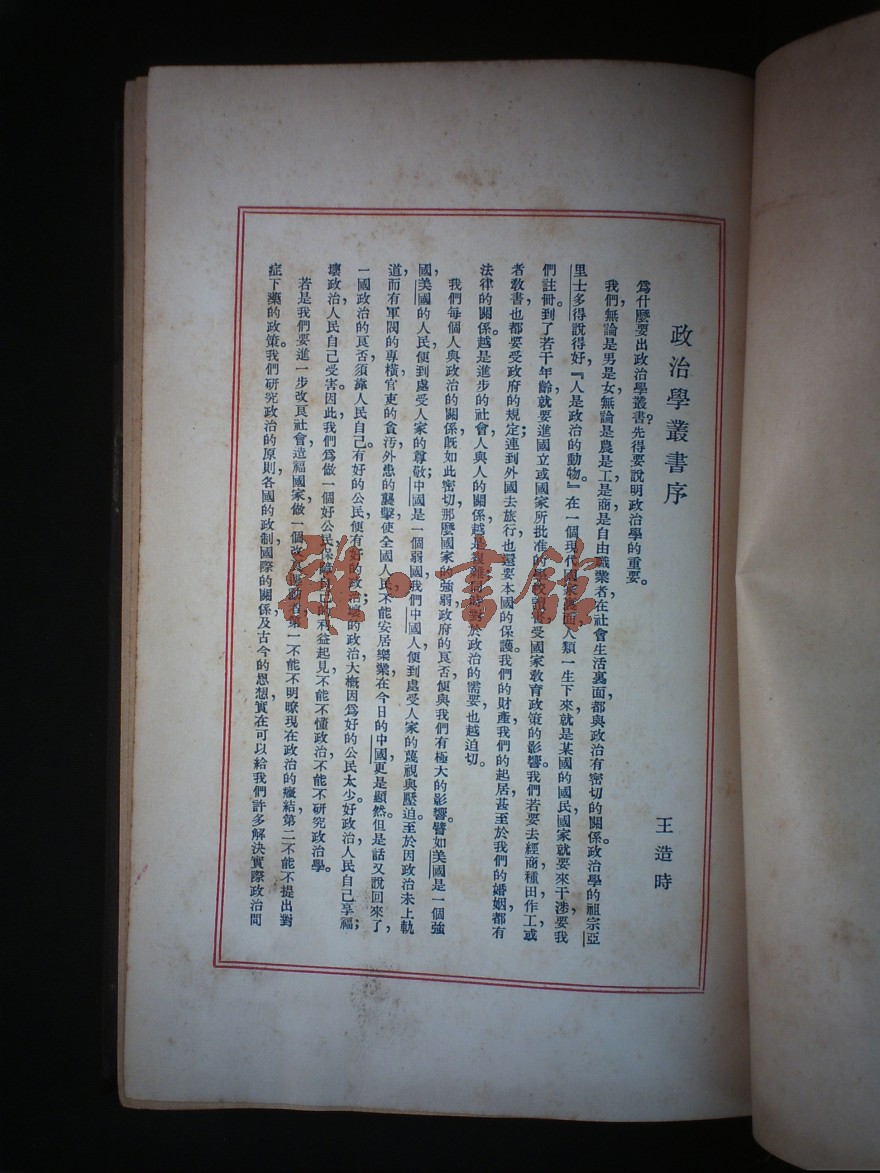 政治學叢書序
王造時
爲什麼要出政治學叢書？先得要說明政治學的重要。
我們，無論是男是女，無論是農是工是商是自由職業者，在社會生活裏面都與政治有密切的關係。政治學的祖宗亞
里士多得說得好，『人是政治的動物。』在一個現代國家裏面，人類一生下來就是某國的國民，國家就要來干涉，要我
們註冊；到了若干年齡，就要進國立或國家所批准的學校，受國家敎育政策的影響。我們若要去經商，種田，作工，或
者敎書，也都要受政府的規定；連到外國去旅行，也還要本國的保護。我們的財產，我們的起居，甚至於我們的婚姻，都有
法律的關係。越是進步的社會，人與人的關係越是複雜，同時對於政治的需要，也越迫切。
我們每個人與政治的關係既如此密切，那麼國家的強弱，政府的良否，便與我們有極大的影響。譬如美國是一個強
國，美國的人民便到處受人家的尊敬；中國是一個弱國，我們中國人便到處受人家的蔑視與壓迫。至於因政治未上軌
道，而有軍閥的專橫，官吏的貪汚，外患的襲擊，使全國人民不能安居樂業，在今日的中國，更是顯然。但是話又說回來了，
一國政治的良否，須靠人民自己。有好的公民，便有好的政治；壞的政治，大概因爲好的公民太少。好政治，人民自己享福；
壞政治，人民自己受害。因此，我們爲做一個好公民，保障自己的利益起見，不能不懂政治，不能不研究政治學。
若是我們要進一步改良社會，造福國家，做一個改良運動者，第一不能不明瞭現在政治的癥結，第二不能不提出對
症下藥的政策。我們研究政治的原則，各國的政制，國際的關係，及古今的思想，實在可以給我們許多解決實際政治問
雅·書館